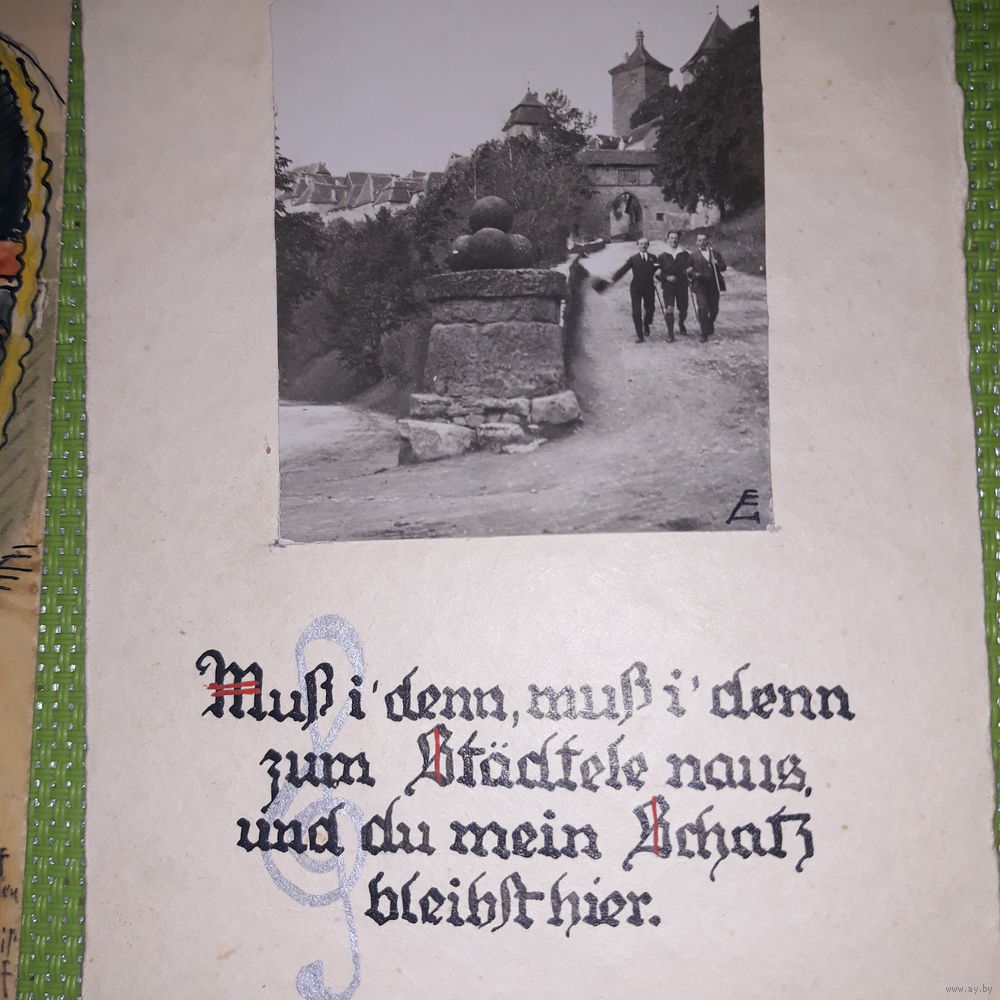 Muß i' denn, muß i' denn
zum Städtele naus,
und du mein Schatz
bleibst hier.
www.ay.by